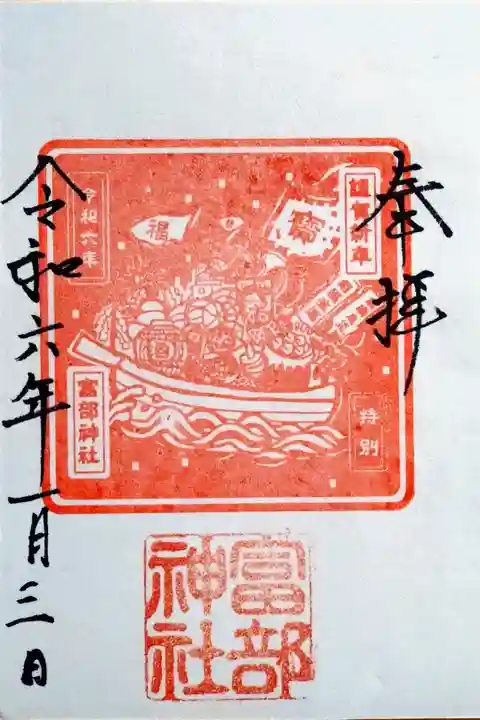 奉拝
謹賀新年
寶
福
令和六年
特別
富部神社
富部
神社
令和六年一月三日